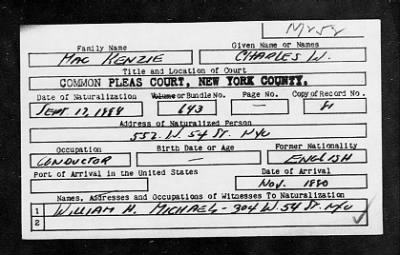 M252
Family Name Given Name or Names
MAC KENZIE CHARLES W.
Title and Location of Court
COMMON PLEAS COURT, NEW YORK COUNTY.
Date of Naturalization Volume or Bundle No. Page No. Copy of Record No.
SEPT 17, 1884 643 — 81
Address of Naturalized Person
552 W. 54 ST. NYC
Occupation Birth Date or Age Former Nationality
CONDUCTOR — ENGLISH
Port of Arrival in the United States Date of Arrival
NOV. 1880
Names, Addresses and Occupations of Witnesses To Naturalization
1 WILLIAM H. MICHAEL - 304 W. 54 ST. NYC
2